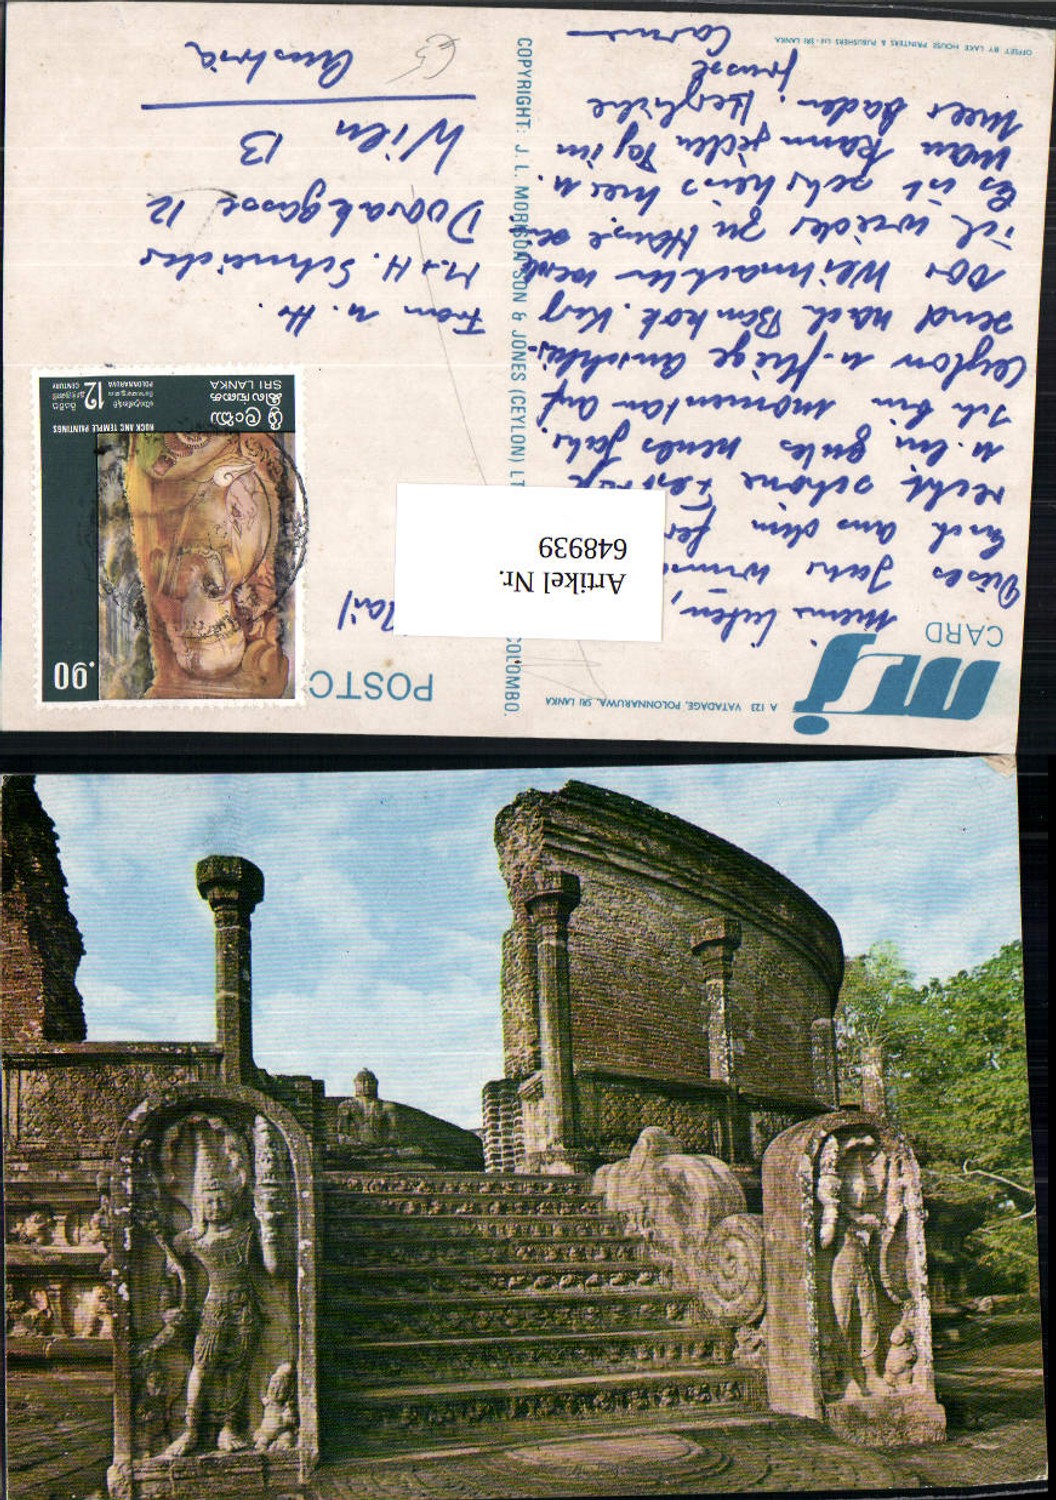 mrj
CARD
POSTC
A 123 VATADAGE, POLONNARUWA, SRI LANKA
Meine lieben,
Dieses Jahr
Euch aus dem
recht schöne
u. ein gutes neues Jahr.
Ich bin momentan auf
Ceylon u. fliege anschlies-
send nach Bankok. Kurz
vor Weihnachten werde
ich wieder zu Hause sein
Es ist sehr heiss hier u.
man kann jeden Tag im
Meer baden. Herzliche
Grüsse
OFFSET BY LAKE HOUSE PRINTERS & PUBLISHERS Ltd - SRI LANKA
COPYRIGHT: J. L. MORISON SON & JONES (CEYLON) LT
COLOMBO.
Artikel Nr.
648939
.90
ශ්‍රී ලංකා
இலங்கை
SRI LANKA
12
CENTURY
POLONNARUVA
ROCK AND TEMPLE PAINTINGS
Fram u. Hr.
M. + H. Schneider
Dvorakgasse 12
Wien 13
Austria